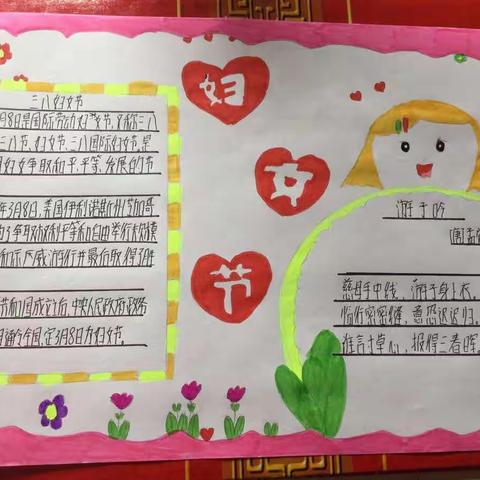 三八妇女节
月8日是国际劳动妇女节,又称三八
三八节、妇女节、三八国际妇女节,是
妇女争取和平、平等、发展的节
年3月8日,美国伊利诺斯州芝加哥
争取权利平等和自由举行
威游行并最后取得
成立后,中央人民政府政务
通令全国,定3月8日为妇女节。
妇
女
节
游子吟
[唐]孟
慈母手中线,游子身上衣。
临行密密缝,意恐迟迟归。
谁言寸草心,报得三春晖。